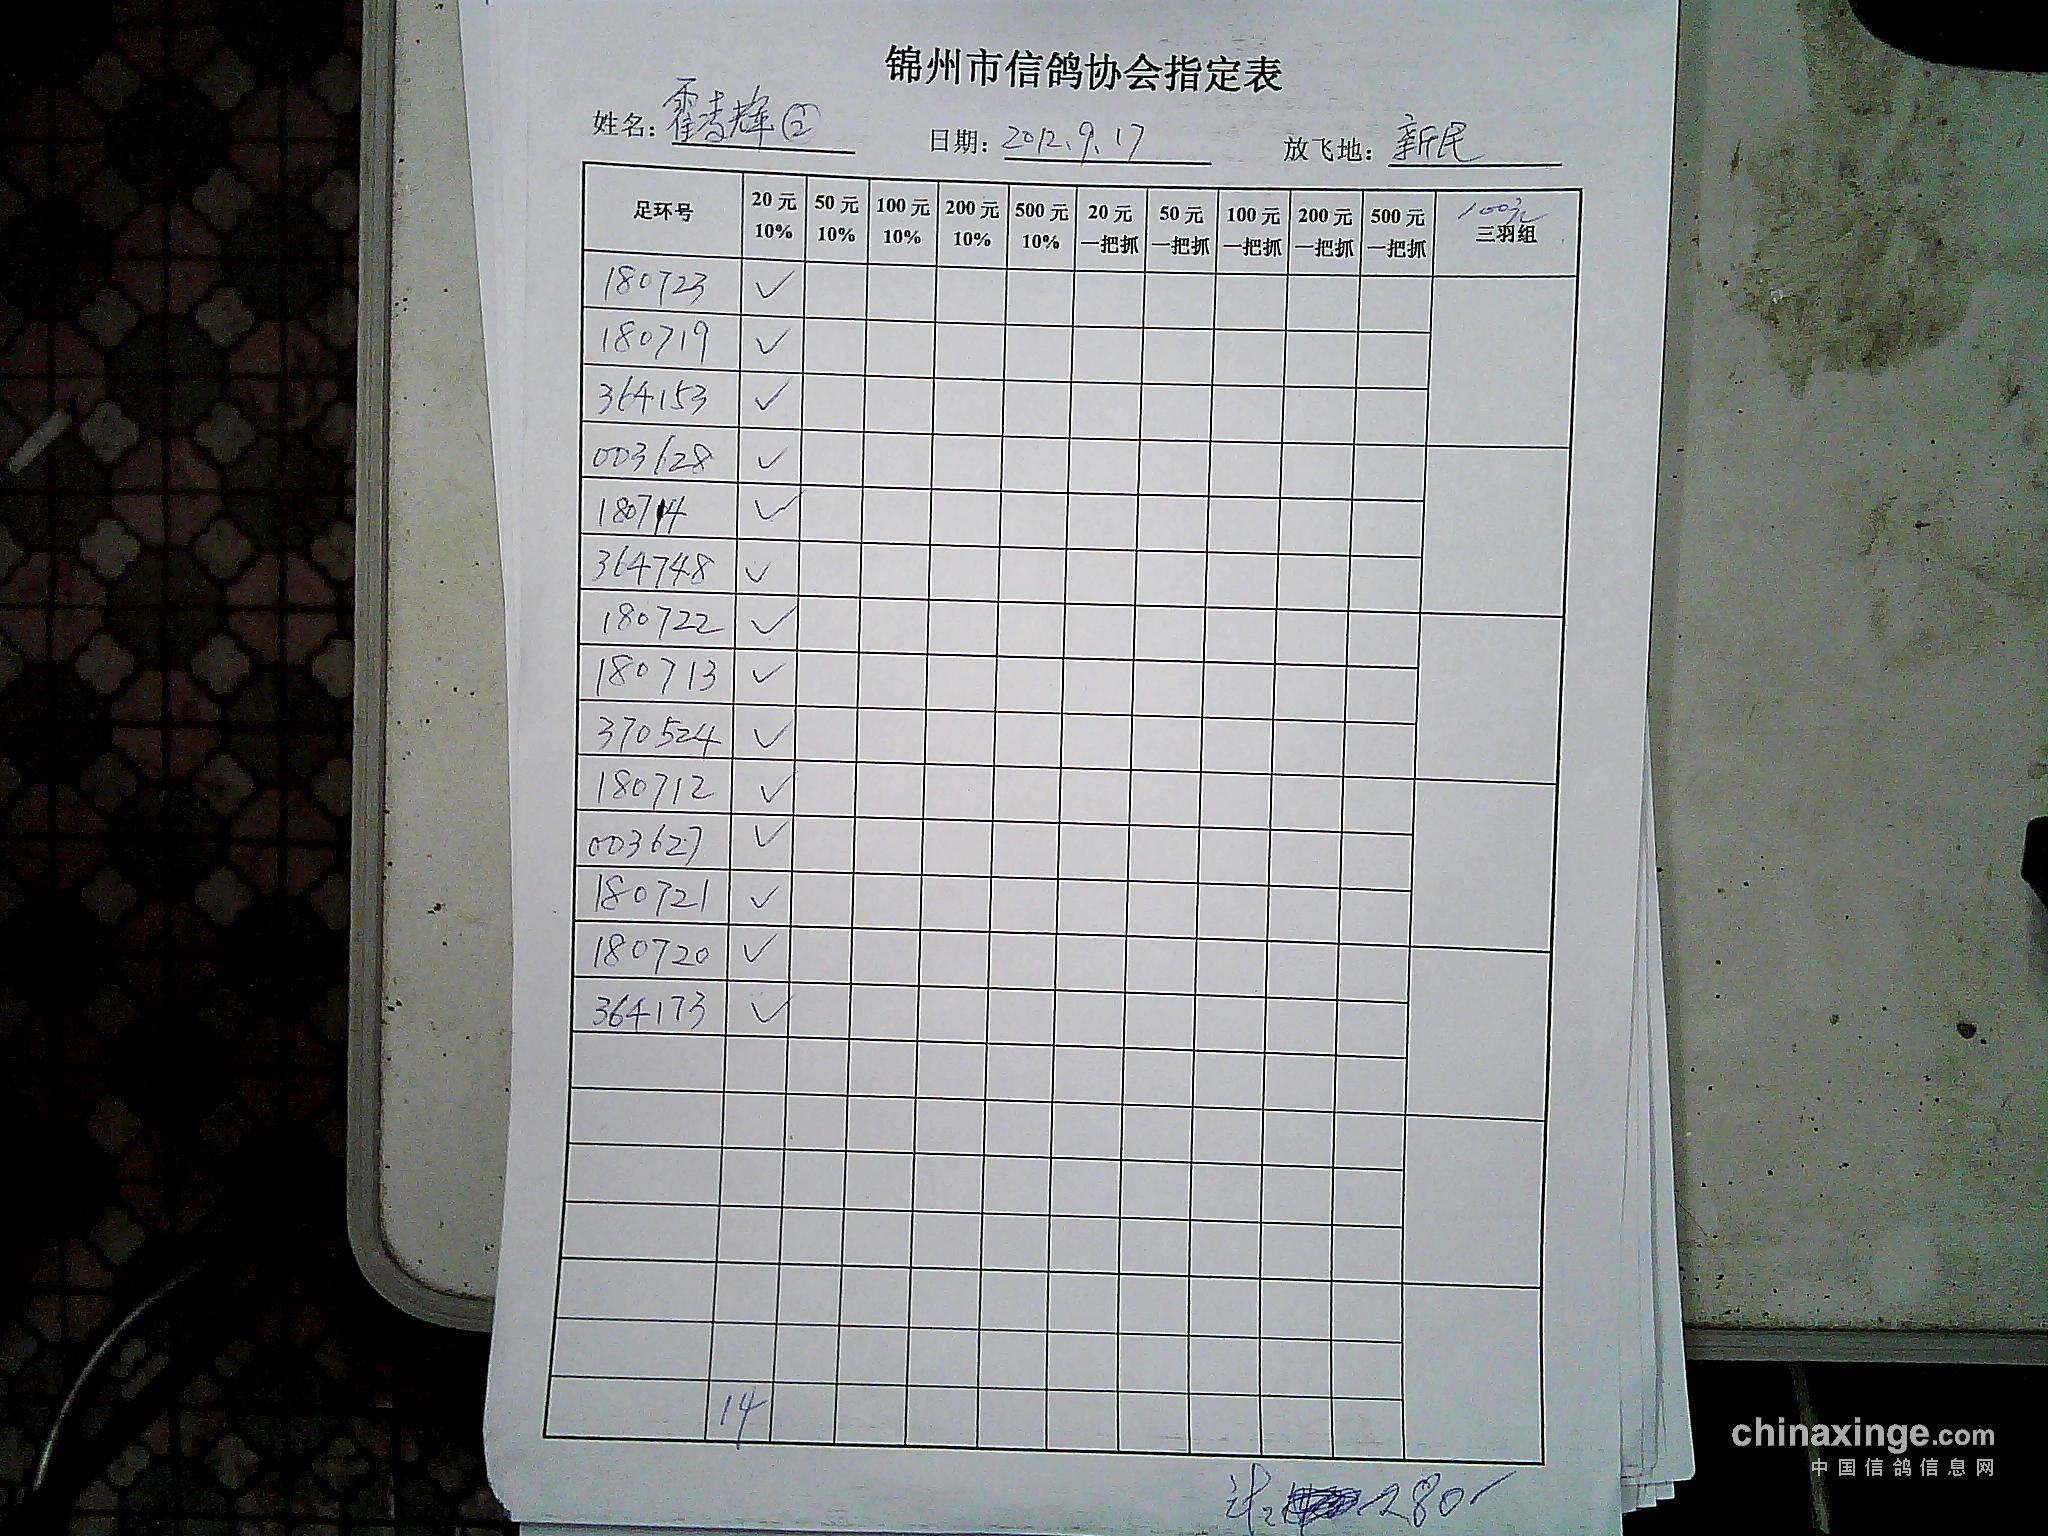 锦州市信鸽协会指定表
姓名：霍志辉② 日期：2012.9.17 放飞地：新民
足环号 20元 10% 50元 10% 100元 10% 200元 10% 500元 10% 20元 一把抓 50元 一把抓 100元 一把抓 200元 一把抓 500元 一把抓 100元 三羽组
180723 ✓
180719 ✓
364153 ✓
003628 ✓
180714 ✓
364748 ✓
180722 ✓
180713 ✓
370524 ✓
180712 ✓
003627 ✓
180721 ✓
180720 ✓
364173 ✓
14
计: 280
chinaxinge.com
中国信鸽信息网